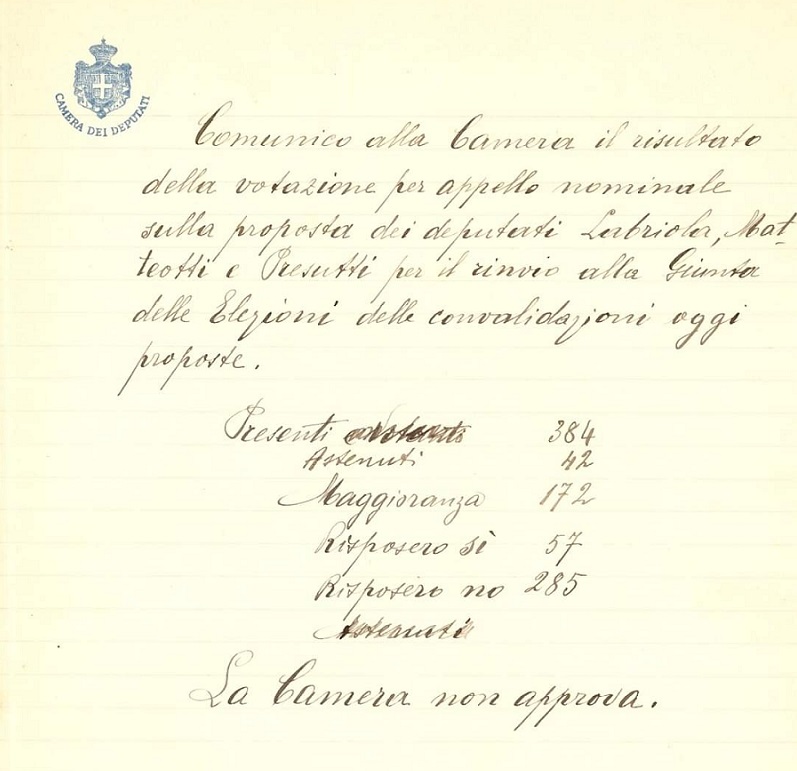 CAMERA DEI DEPUTATI
Comunico alla Camera il risultato
della votazione per appello nominale
sulla proposta dei deputati Labriola, Mat-
teotti e Presutti per il rinvio alla Giunta
delle Elezioni delle convalidazioni oggi
proposte.
Presenti 384
Astenuti 42
Maggioranza 172
Risposero sì 57
Risposero no 285
Astenuti
La Camera non approva.